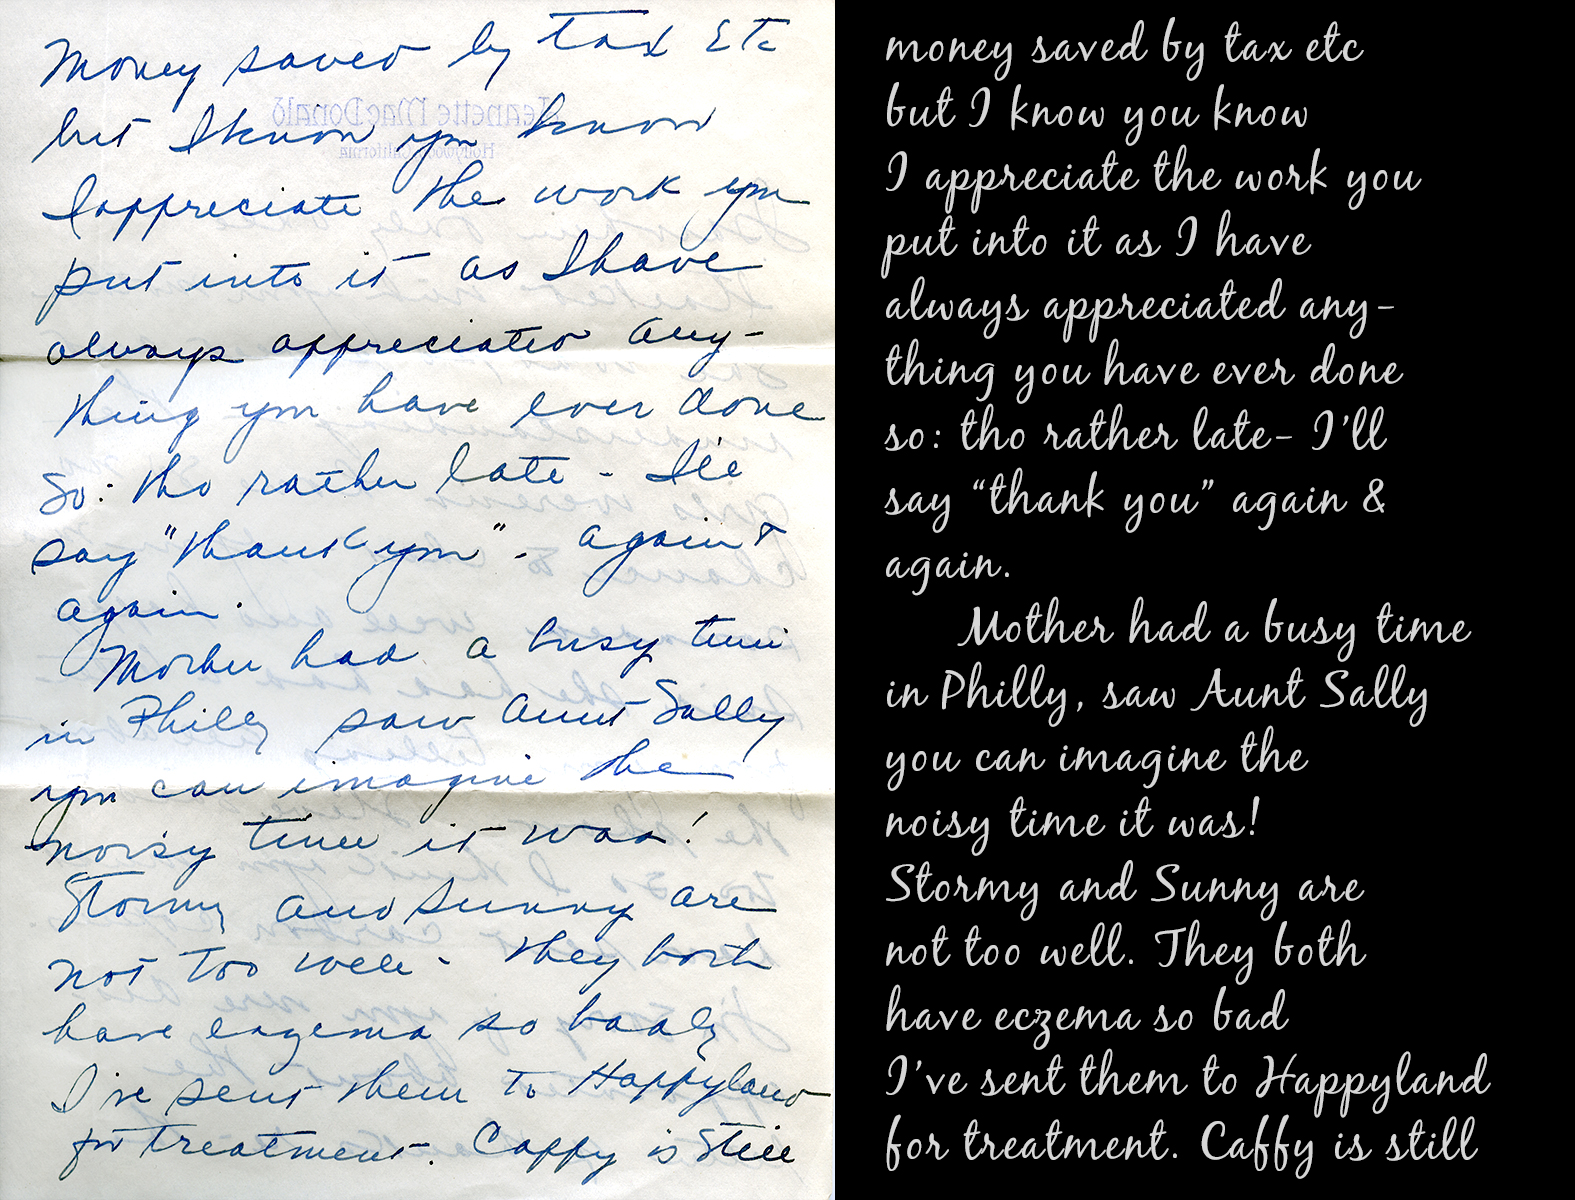 Money saved by tax Etc
but I know you know
I appreciate the work you
put into it as I have
always appreciated any-
thing you have ever done
So: tho rather late - I'll
say "thank you" - again &
again.
Mother had a busy time
in Philly saw Aunt Sally
you can imagine the
noisy time it was!
Stormy and Sunny are
not too well - They both
have eczema so badly
I've sent them to Happyland
for treatment. Caffy is still
Jeanette MacDonald
Hollywood, California
money saved by tax etc
but I know you know
I appreciate the work you
put into it as I have
always appreciated any-
thing you have ever done
so: tho rather late- I'll
say “thank you” again &
again.
Mother had a busy time
in Philly, saw Aunt Sally
you can imagine the
noisy time it was!
Stormy and Sunny are
not too well. They both
have eczema so bad
I've sent them to Happyland
for treatment. Caffy is still